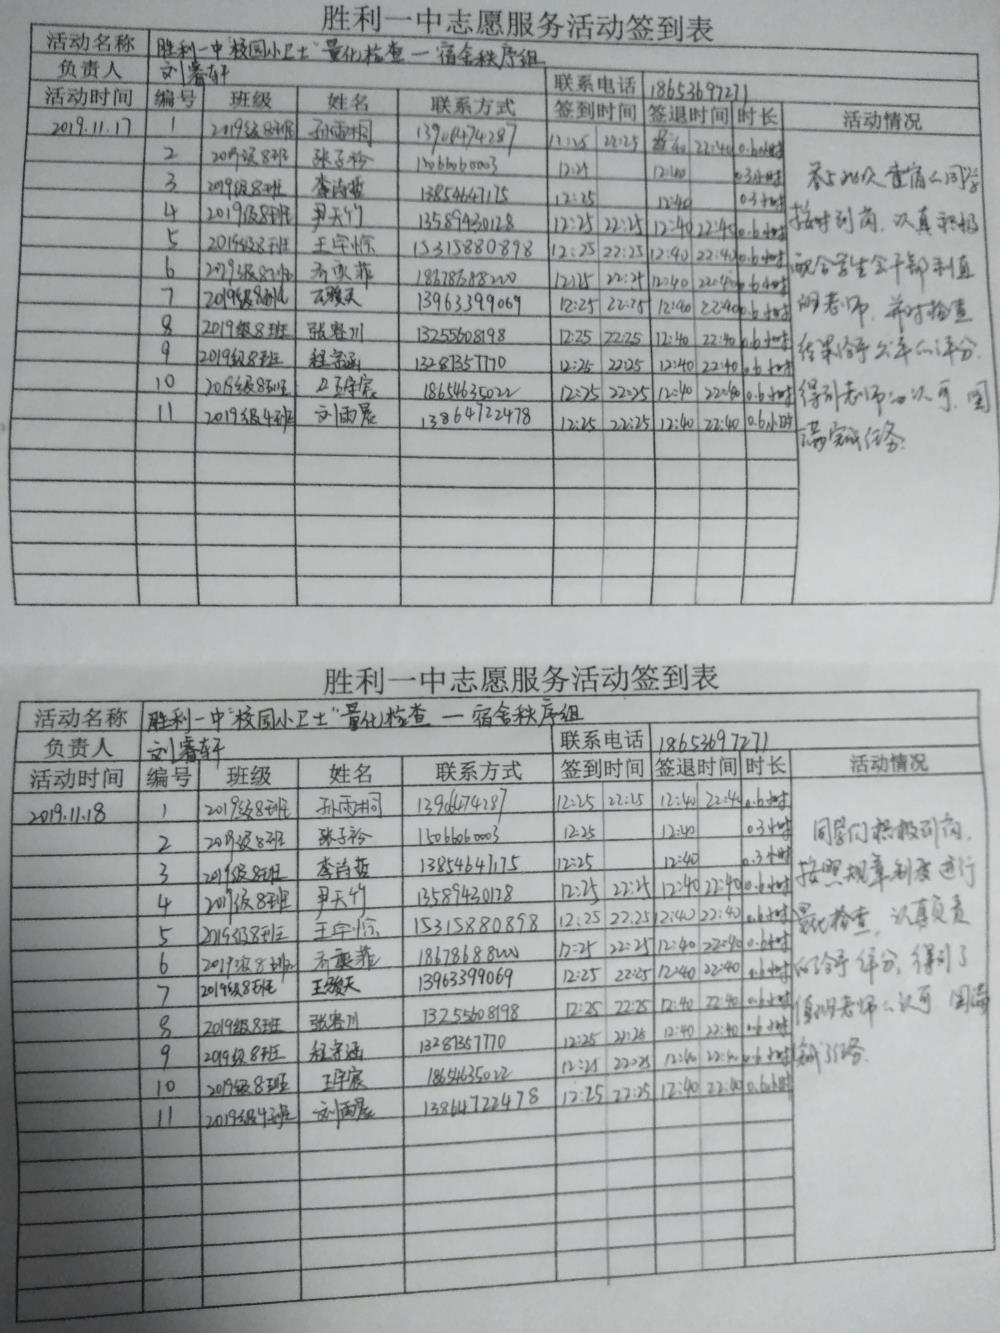 胜利一中志愿服务活动签到表
活动名称 胜利一中"校园小卫士"量化检查 — 宿舍秩序组
负责人 刘睿轩 联系电话 18653697271
活动时间 编号 班级 姓名 联系方式 签到时间 签退时间 时长 活动情况
2019.11.17 1 2019级8班 孙雨桐 13906474287 12:25 22:25 12:40 22:40 0.6小时
2 2019级8班 张子衿 15066060003 12:25 12:40 0.3小时
3 2019级8班 李尚哲 13854647175 12:25 12:40 0.3小时
4 2019级8班 尹天竹 13589430128 12:25 22:25 12:40 22:40 0.6小时
5 2019级8班 王宇惊 15315880898 12:25 22:25 12:40 22:40 0.6小时
6 2019级8班 18678688200 12:25 22:25 12:40 22:40 0.6小时
7 2019级8班 王骏天 13963399069 12:25 22:25 12:40 22:40 0.6小时
8 2019级8班 张睿川 13255608198 12:25 22:25 12:40 22:40 0.6小时
9 2019级8班 程宗涵 13281357770 12:25 22:25 12:40 22:40 0.6小时
10 2019级8班 王宇宸 18654635022 12:25 22:25 12:40 22:40 0.6小时
11 2019级4班 刘雨晨 13864722478 12:25 22:25 12:40 22:40 0.6小时
参与此次查宿的同学
按时到岗，认真积极
配合学生会干部和值
的老师，并对检查
结果给予公平的评分.
得到老师的认可，圆
满完成任务.
胜利一中志愿服务活动签到表
活动名称 胜利一中"校园小卫士"量化检查 — 宿舍秩序组
负责人 刘睿轩 联系电话 18653697271
活动时间 编号 班级 姓名 联系方式 签到时间 签退时间 时长 活动情况
2019.11.18 1 2019级8班 孙雨桐 13906474287 12:25 22:25 12:40 22:40 0.6小时
2 2019级8班 张子衿 15066060003 12:25 12:40 0.3小时
3 2019级8班 李尚哲 13854647175 12:25 12:40 0.3小时
4 2019级8班 尹天竹 13589430128 12:25 22:25 12:40 22:40 0.6小时
5 2019级8班 王宇惊 15315880898 12:25 22:25 12:40 22:40 0.6小时
6 2019级8班 18678688200 12:25 22:25 12:40 22:40 0.6小时
7 2019级8班 王骏天 13963399069 12:25 22:25 12:40 22:40 0.6小时
8 2019级8班 张睿川 13255608198 12:25 22:25 12:40 22:40 0.6小时
9 2019级8班 程宗涵 13281357770 12:25 22:25 12:40 22:40 0.6小时
10 2019级8班 王宇宸 18654635022 12:25 22:25 12:40 22:40 0.6小时
11 2019级4班 刘雨晨 13864722478 12:25 22:25 12:40 22:40 0.6小时
同学们积极到岗，
按照规章制度进行
量化检查，认真负责
的给予评分，得到了
值班老师的认可，圆满
完成了任务.